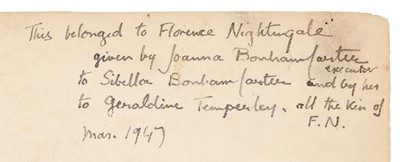 This belonged to Florence Nightingale
given by Joanna Bonham Carter
executor
to Sibella Bonham Carter and by her
to Geraldine Temperley. all the Kin of
F.N.
Mar. 1947